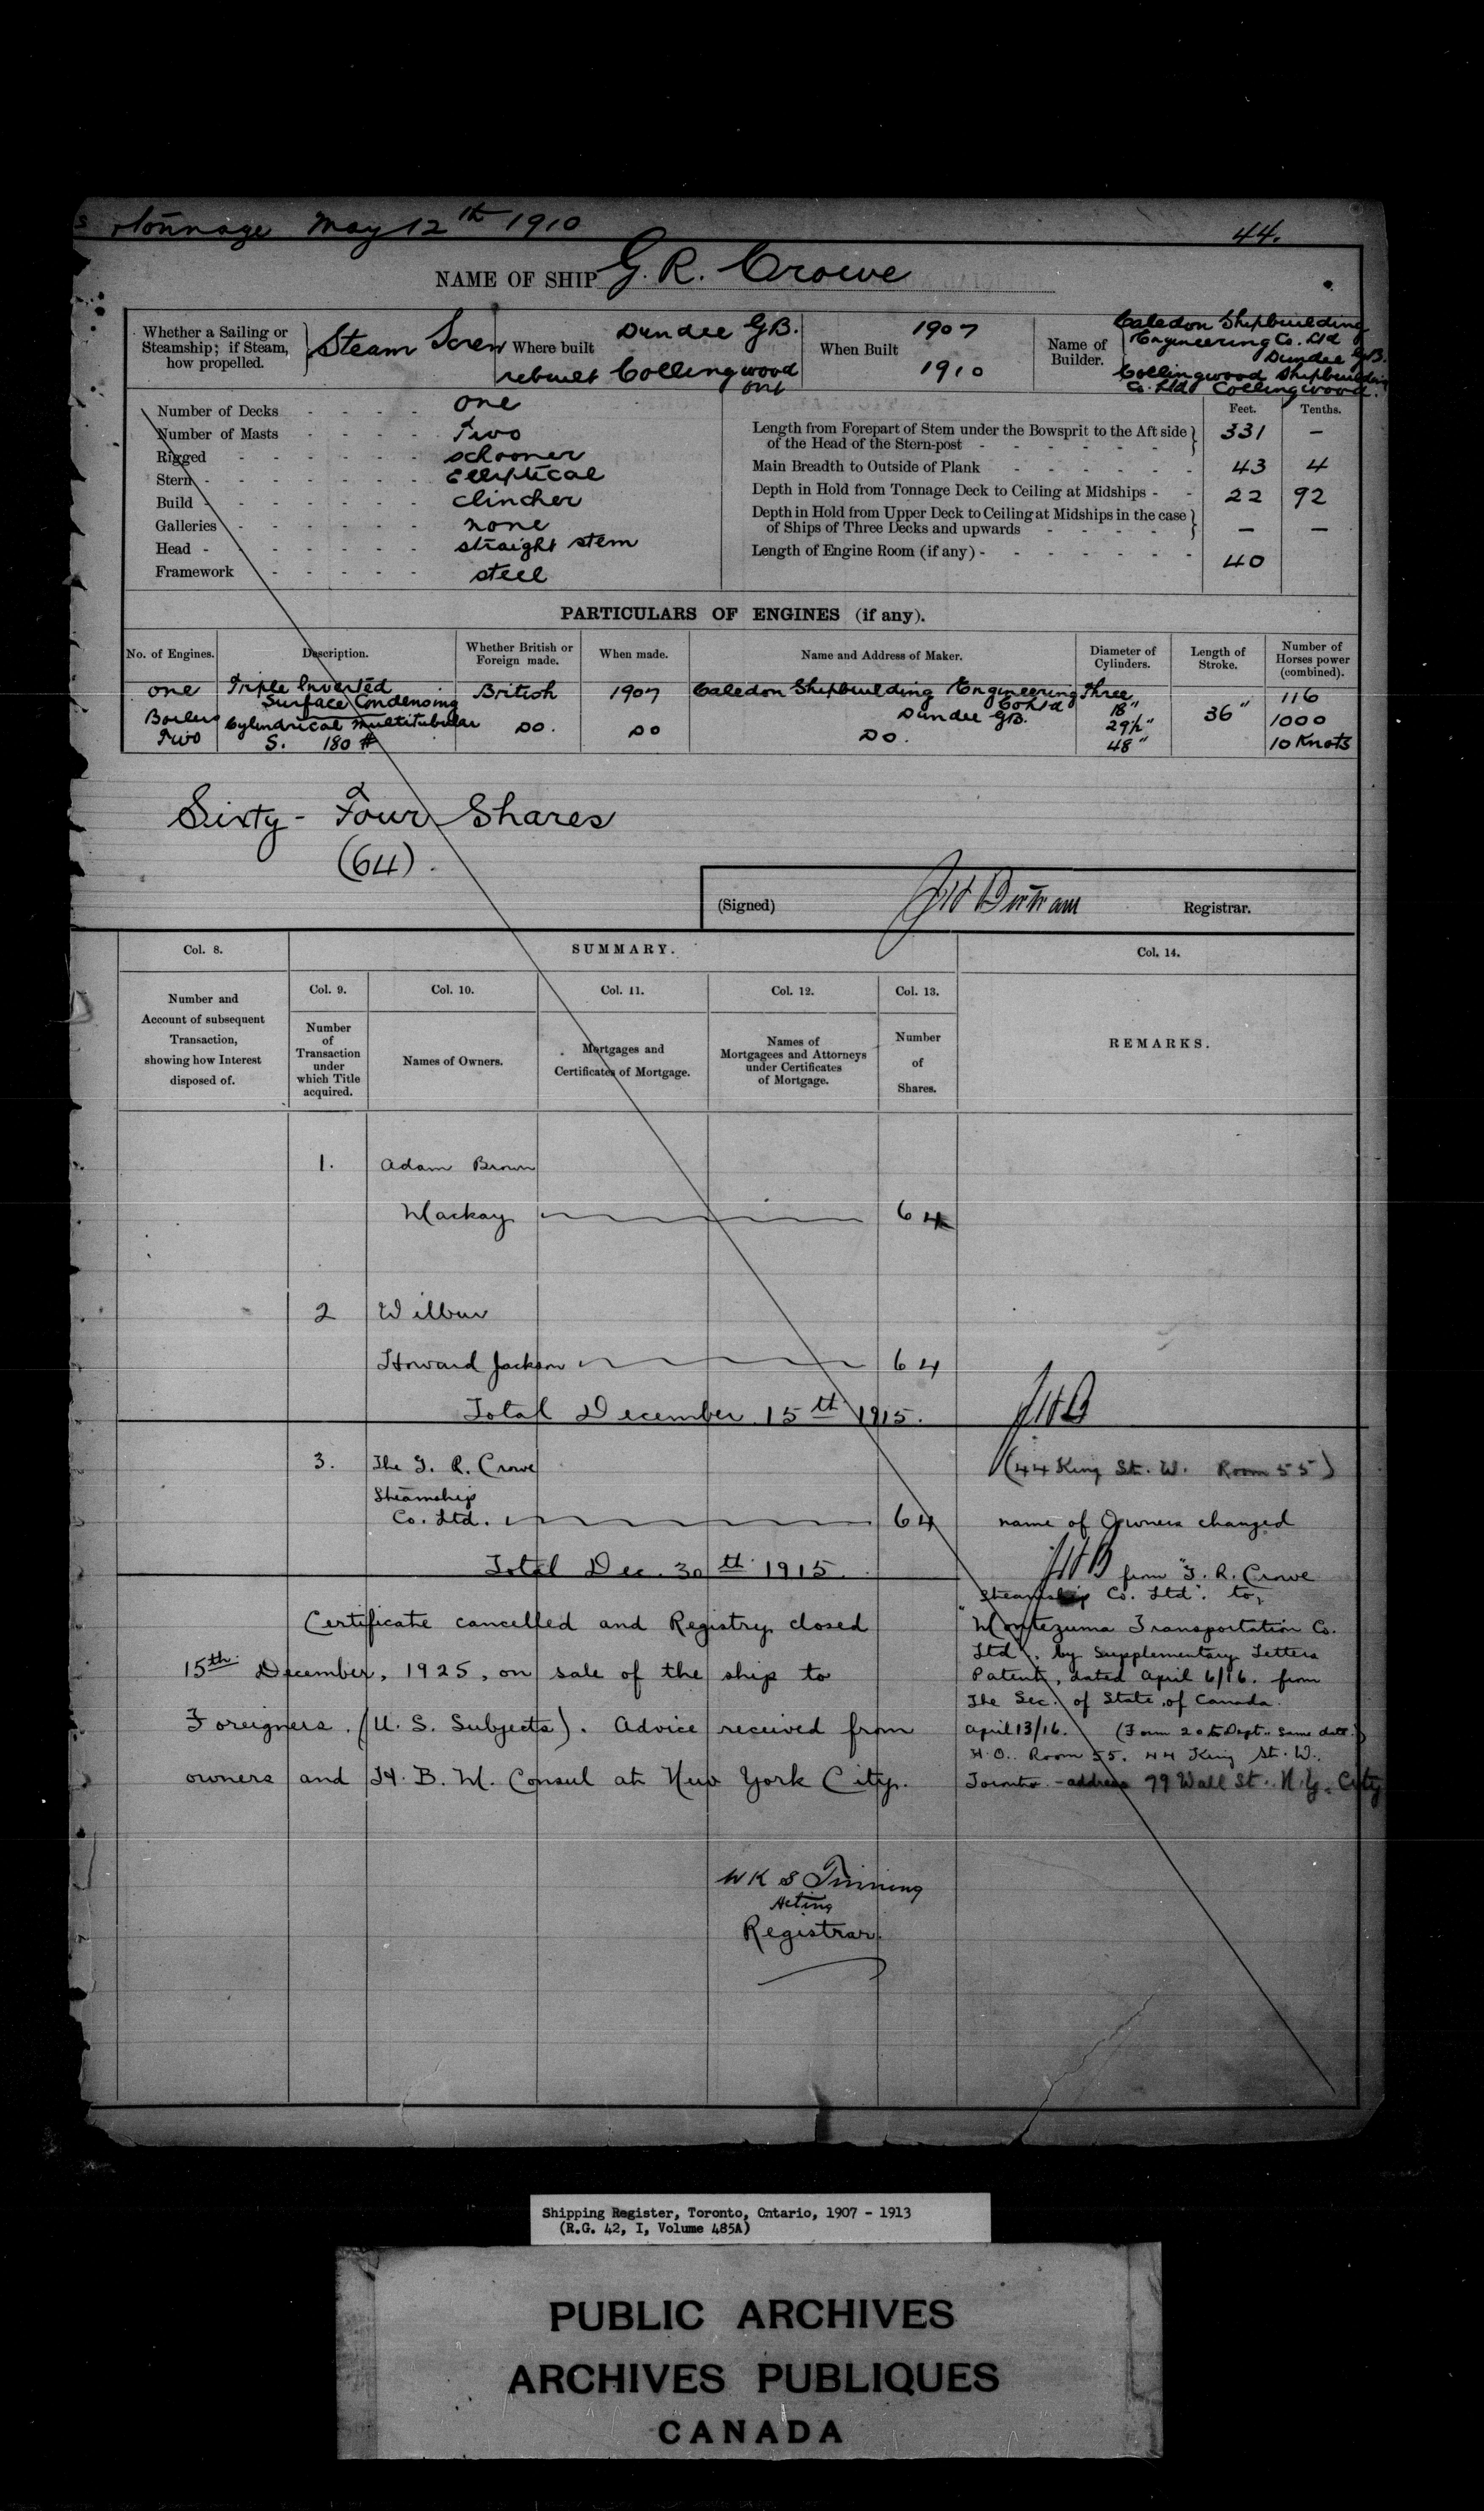 s tonnage May 12th 1910
44.
NAME OF SHIP G. R. Crowe
Whether a Sailing or Steamship; if Steam, how propelled. Steam Screw
Where built Dundee G.B.
rebuilt Collingwood Ont
When Built 1907
1910
Name of Builder. Caledon Shipbuilding
Engineering Co. Ltd
Dundee G.B.
Collingwood Shipbuilding
Co. Ltd Collingwood.
Number of Decks - - - - one
Number of Masts - - - - Two
Rigged - - - - - - schooner
Stern - - - - - - - Elliptical
Build - - - - - - - clincher
Galleries - - - - - - none
Head - - - - - - - straight stem
Framework - - - - - steel
Feet. Tenths.
Length from Forepart of Stem under the Bowsprit to the Aft side
of the Head of the Stern-post - - - - - - 331 –
Main Breadth to Outside of Plank - - - - - - 43 4
Depth in Hold from Tonnage Deck to Ceiling at Midships - - 22 92
Depth in Hold from Upper Deck to Ceiling at Midships in the case
of Ships of Three Decks and upwards - - - - – –
Length of Engine Room (if any) - - - - - - - 40
PARTICULARS OF ENGINES (if any).
No. of Engines. Description. Whether British or Foreign made. When made. Name and Address of Maker. Diameter of Cylinders. Length of Stroke. Number of Horses power (combined).
one Triple Inverted Surface Condensing British 1907 Caledon Shipbuilding Engineering Co Ltd Dundee G.B. Three 18" 29½" 48" 36" 116
Boilers Two Cylindrical Multitubular S. 180 # Do. Do Do. 1000
10 Knots
Sixty-Four Shares
(64).
(Signed) J H Bertram Registrar.
Col. 8. SUMMARY. Col. 14.
Number and
Account of subsequent
Transaction,
showing how Interest
disposed of.
Col. 9. Col. 10. Col. 11. Col. 12. Col. 13.
Number
of
Transaction
under
which Title
acquired.
Names of Owners.
Mortgages and
Certificates of Mortgage.
Names of
Mortgagees and Attorneys
under Certificates
of Mortgage.
Number
of
Shares.
REMARKS.
1. Adam Brown
Mackay 64
2 Wilbur
Howard Jackson 64
Total December 15th 1915. JHB
3. The G. R. Crowe
Steamship
Co. Ltd. 64
Total Dec. 30th 1915.
(44 King St. W. Room 55)
name of Owners changed
JHB from "G. R. Crowe
Steamship Co. Ltd". to,
"Montezuma Transportation Co.
Ltd". by Supplementary Letters
Patent, dated April 6/16. from
The Sec. of State of Canada.
April 13/16. (Form 20 to Dept. same date.)
H.O. Room 55. 44 King St. W.
Toronto - address 79 Wall St. N.Y. City
Certificate cancelled and Registry closed
15th December, 1925, on sale of the ship to
Foreigners. (U. S. Subjects). Advice received from
owners and H. B. M. Consul at New York City.
W K S Twining
Acting
Registrar.
Shipping Register, Toronto, Ontario, 1907 - 1913
(R.G. 42, I, Volume 485A)
PUBLIC ARCHIVES
ARCHIVES PUBLIQUES
CANADA